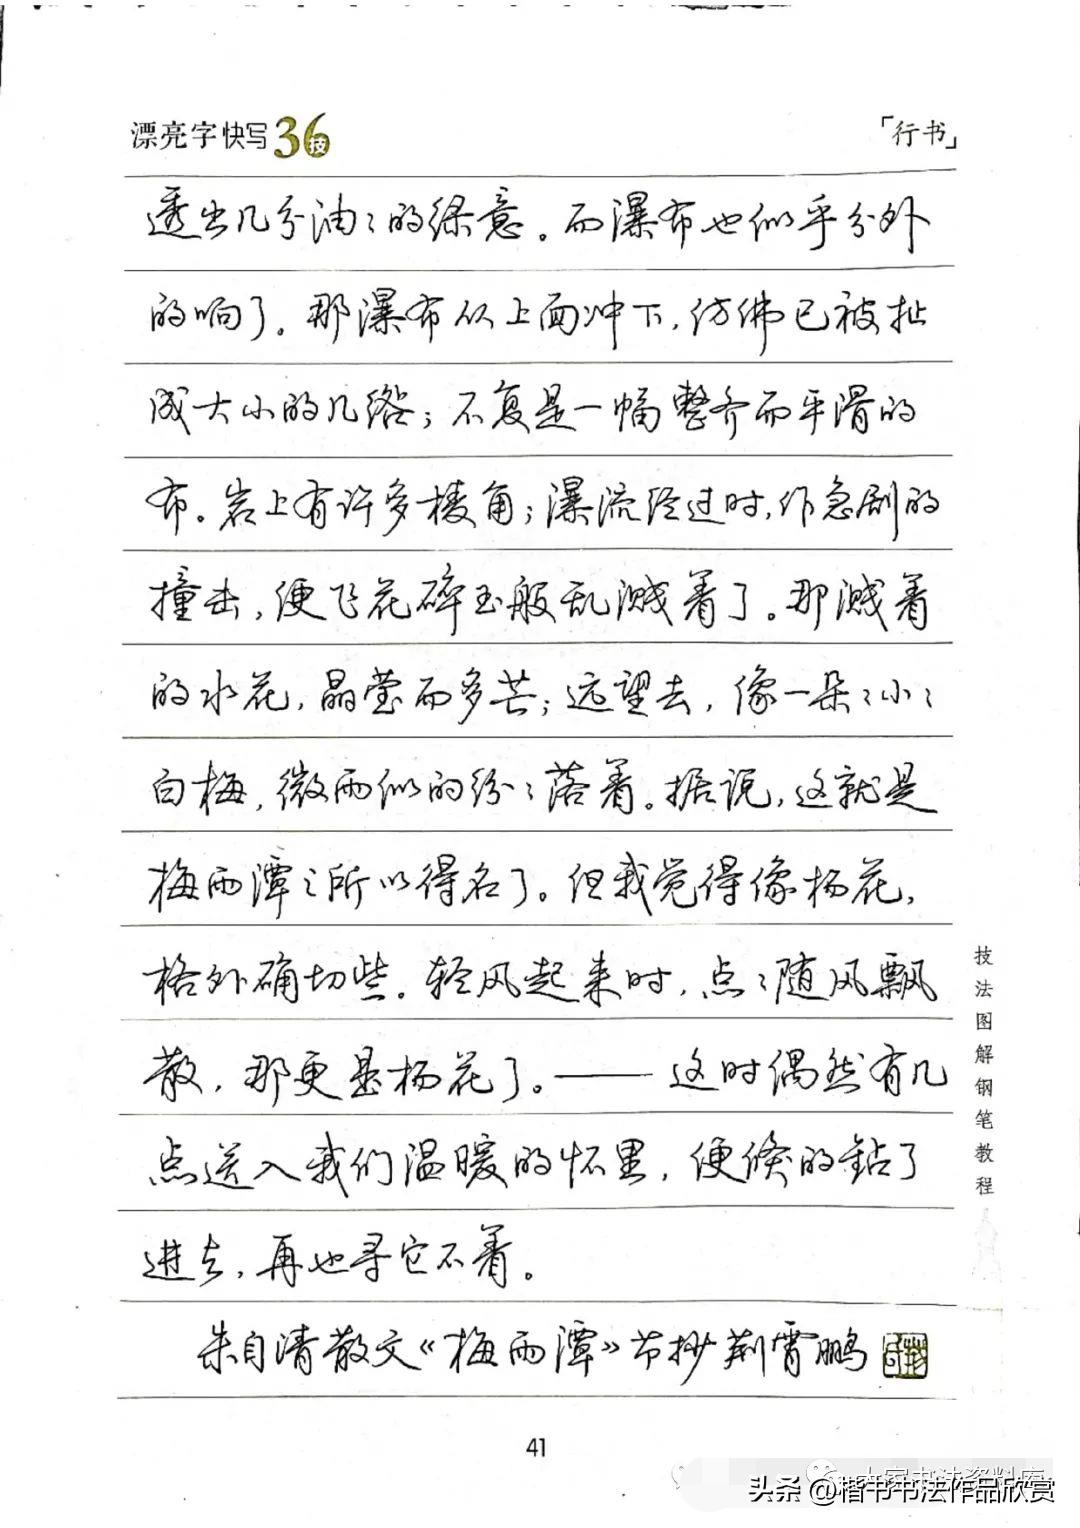 漂亮字快写36技
「行书」
透出几分油油的绿意。而瀑布也似乎分外
的响了。那瀑布从上面冲下，仿佛已被扯
成大小的几绺；不复是一幅整齐而平滑的
布。岩上有许多棱角；瀑流经过时，作急剧的
撞击，便飞花碎玉般乱溅着了。那溅着
的水花，晶莹而多芒；远望去，像一朵朵小小
白梅，微雨似的纷纷落着。据说，这就是
梅雨潭之所以得名了。但我觉得像杨花，
格外确切些。轻风起来时，点点随风飘
散，那更是杨花了。——这时偶然有几
点送入我们温暖的怀里，便倏的钻了
进去，再也寻它不着。
朱自清散文《梅雨潭》节抄 荆霄鹏
技法图解钢笔教程
41
头条@楷书书法作品欣赏